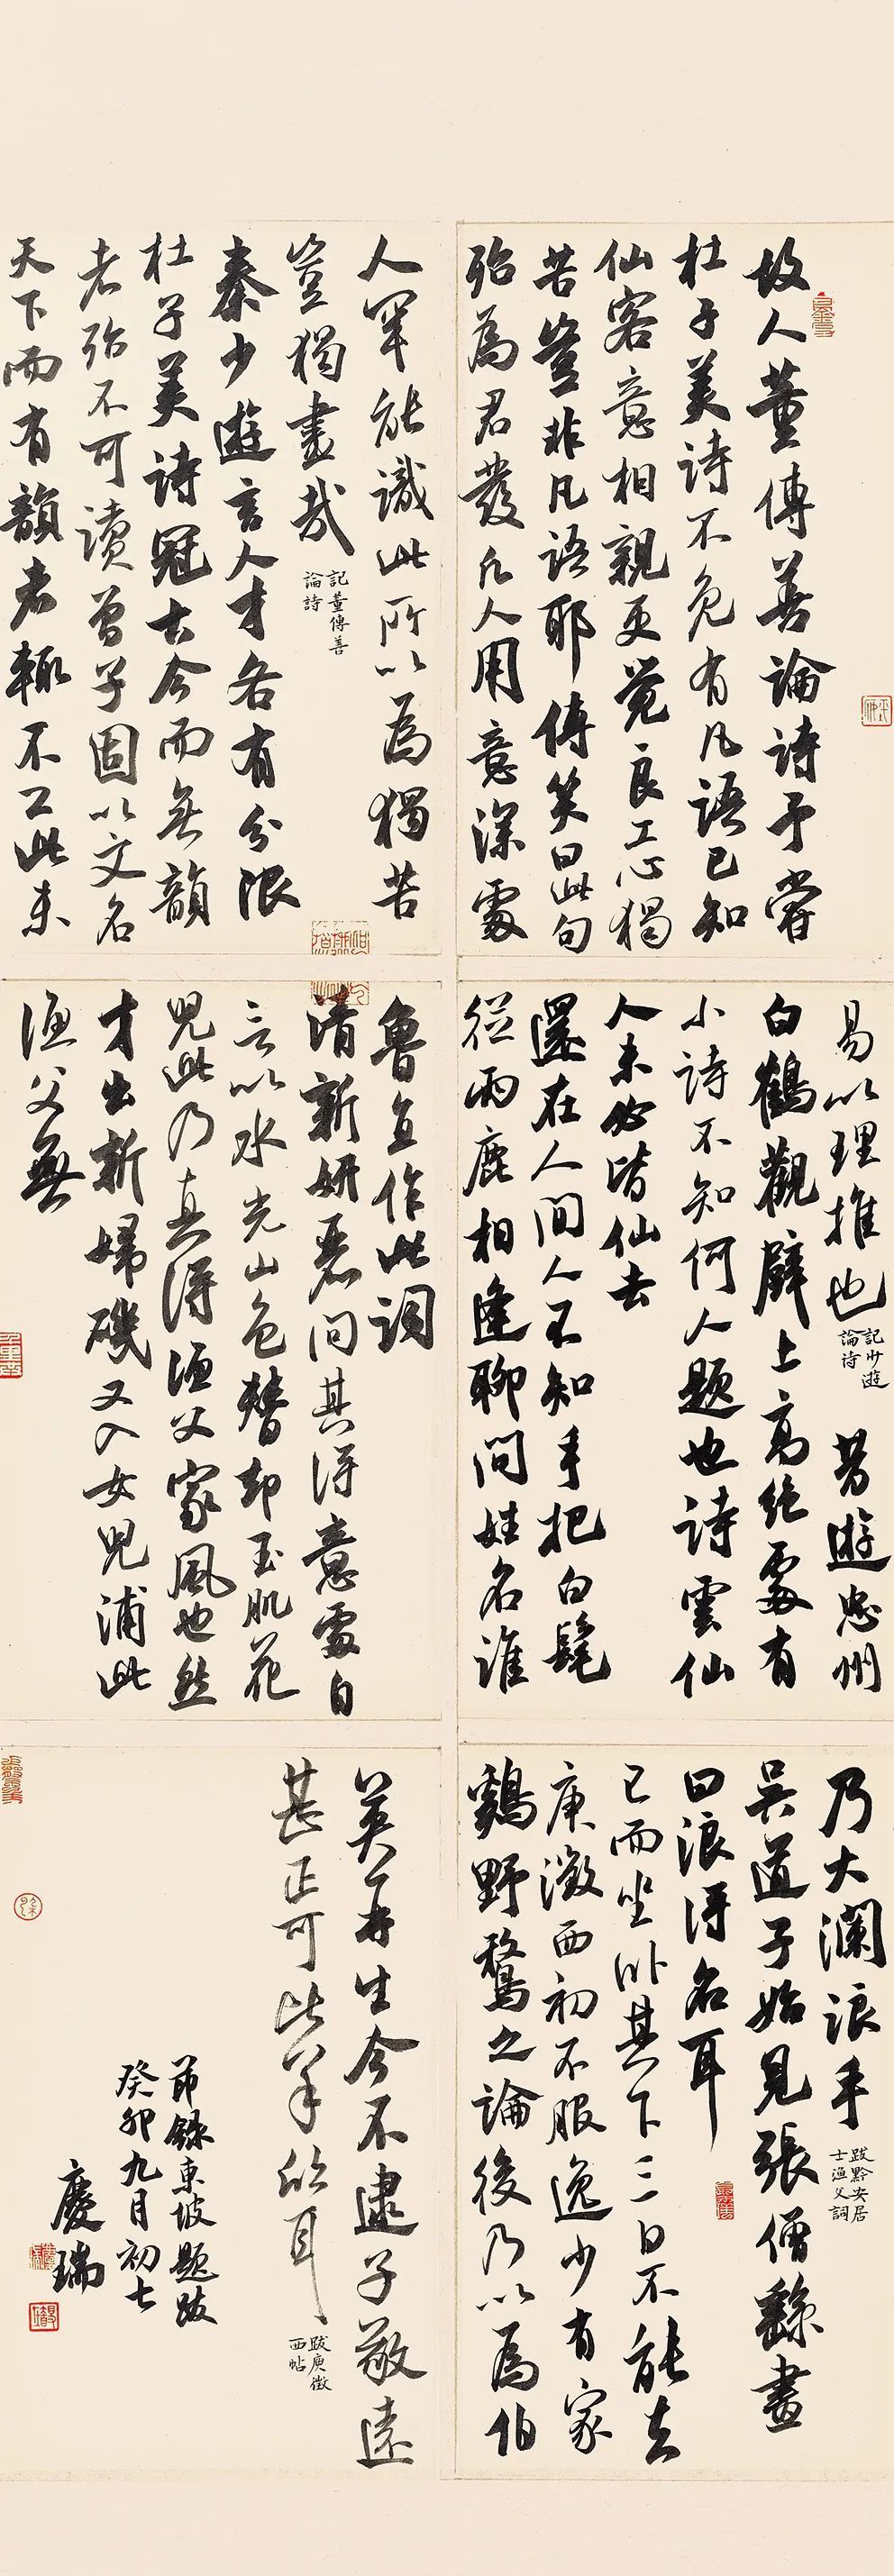 故人董傳善論詩予嘗
杜子美詩不免有凡語已知
仙客意相親更覺良工心獨
苦豈非凡語耶傳笑曰此句
殆為君發凡人用意深處
人罕能識此所以為獨苦
豈獨畫哉
記董傳善
論詩
秦少遊言人才各有分限
杜子美詩冠古今而無韻
者殆不可讀曾子固以文名
天下而有韻者輒不工此未
易以理推也
記少遊
論詩
昔遊忠州
白鶴觀壁上高絕處有
小詩不知何人題也詩雲仙
人未必皆仙去
還在人間人不知手把白髦
從兩鹿相逢聊問姓名誰
魯直作此詞
清新妍麗問其得意處自
言以水光山色替却玉肌花
兒此乃真得漁父家風也然
才出新婦磯又入女兒浦此
漁父無
乃大瀾浪手
跋黔安居
士漁父詞
吳道子始見張僧繇畫
曰浪得名耳
已而坐卧其下三日不能去
庾徵西初不服逸少有家
鷄野鶩之論後乃以為伯
英再生今不逮子敬遠
甚正可比羊欣耳
跋庾徵
西帖
節錄東坡題跋
癸卯九月初七
慶瑞